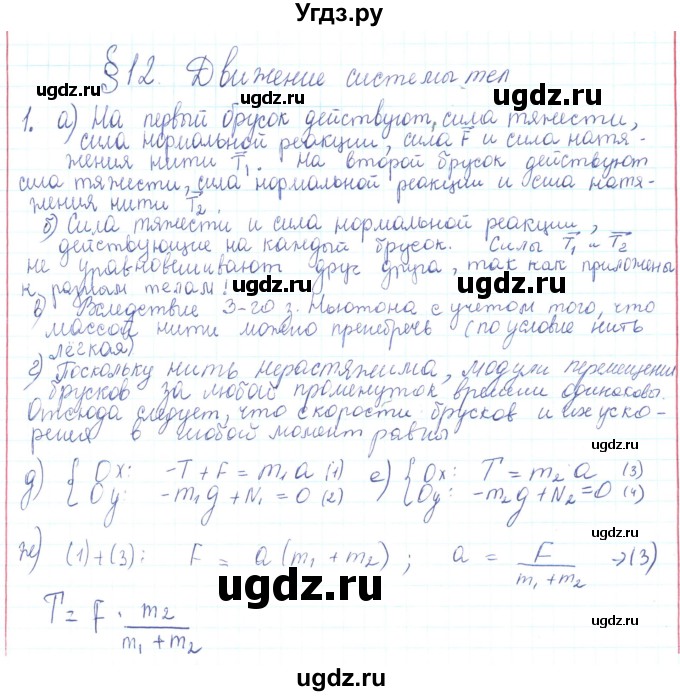 Угдз.ру
§12. Движение системы тел
1. а) На первый брусок действуют, сила тяжести,
сила нормальной реакции, сила F⃗ и сила натя-
жения нити T⃗₁. На второй брусок действуют
сила тяжести, сила нормальной реакции и сила натя-
жения нити T⃗₂.
б) Сила тяжести и сила нормальной реакции,
действующие на каждый брусок. Силы T⃗₁ и T⃗₂
не уравновешивают друг друга, так как приложены
к разным телам.
в) Вследствие 3-го з. Ньютона с учетом того, что
массой нити можно пренебречь (по условию нить
лёгкая)
г) Поскольку нить нерастяжима, модули перемещений
брусков за любой промежуток времени одинаковы.
Отсюда следует, что скорости брусков и их уско-
рения в любой момент равны
д) { Ox: -T + F = m₁a (1) е) { Ox: T = m₂a (3)
Oy: -m₁g + N₁ = 0 (2) Oy: -m₂g + N₂ = 0 (4)
ж) (1)+(3): F = a(m₁ + m₂); a = F / (m₁ + m₂) → (3)
T = F · m₂ / (m₁ + m₂)
ugdz.ru
ugdz.ru
ugdz.ru
ugdz.ru
ugdz.ru
ugdz.ru
ugdz.ru
ugdz.ru
ugdz.ru
ugdz.ru
ugdz.ru
ugdz.ru
ugdz.ru
ugdz.ru